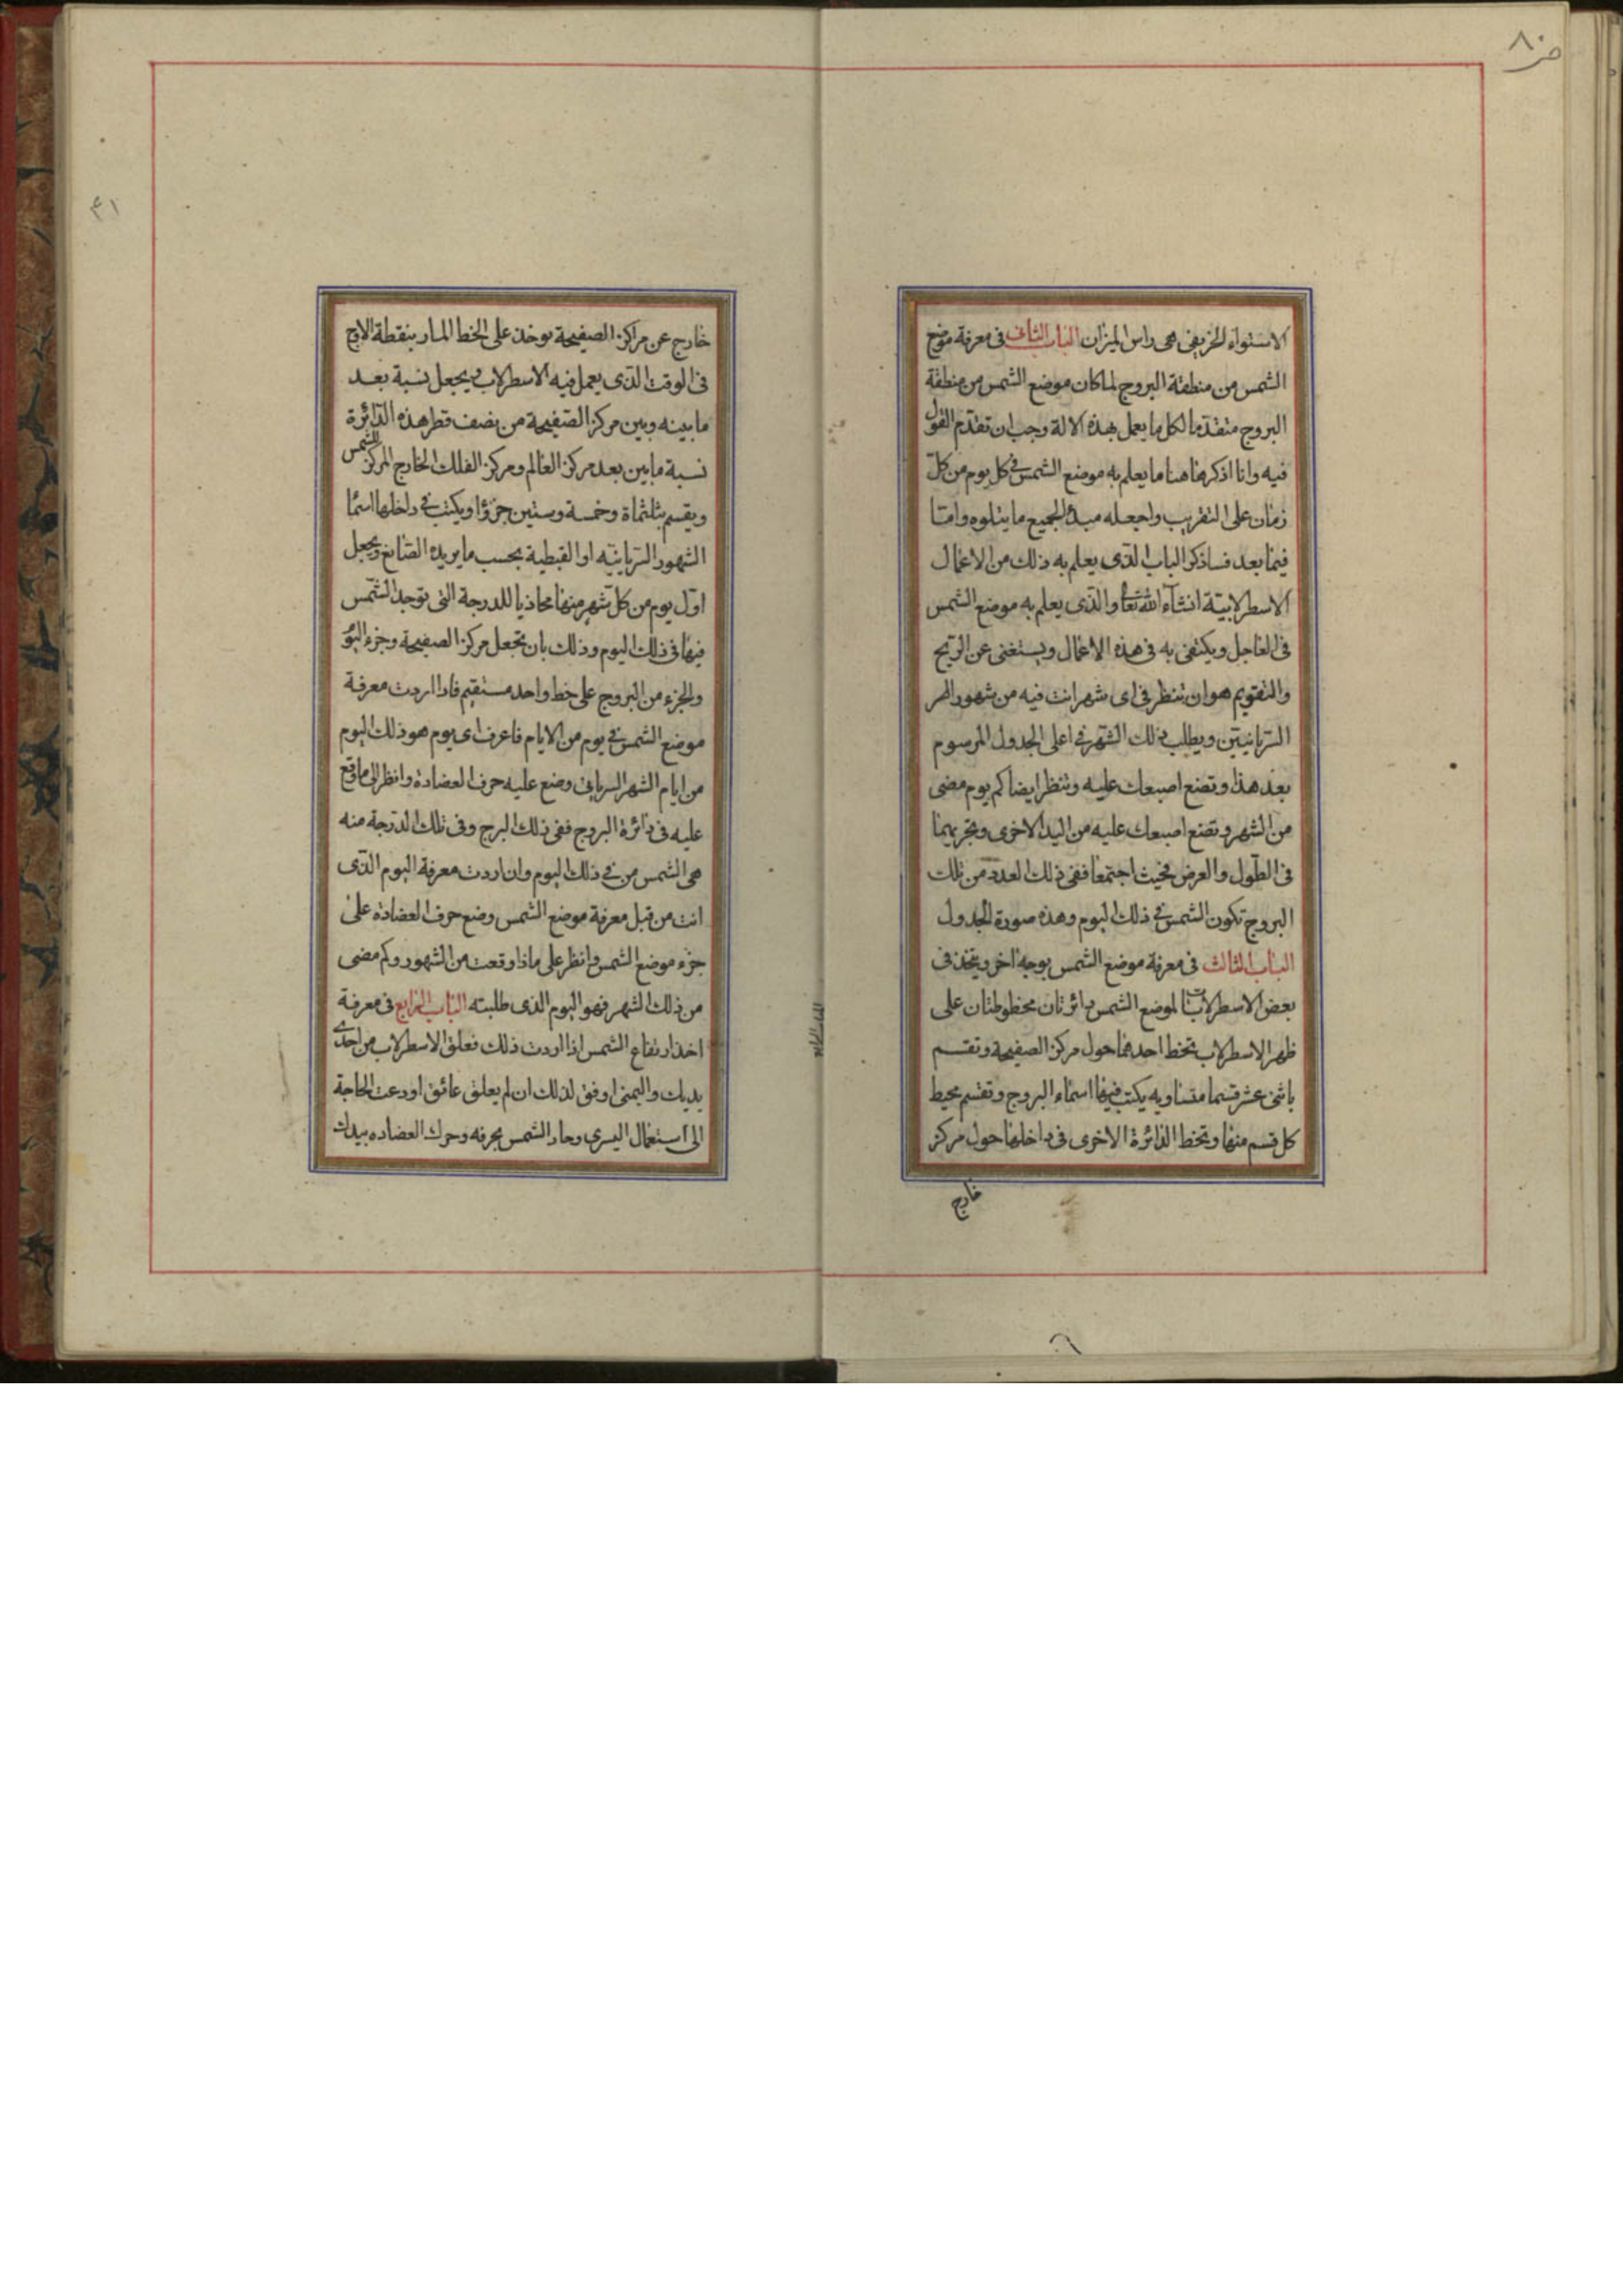 الاستواء الخريفى هى راس الميزان الباب الثانى فى معرفة موضع
الشمس من منطقة البروج لما كان موضع الشمس من منطقة
البروج متقدما لكل ما يعمل بهذه الالة وجب ان تقدم القول
فيه وانا اذكر هاهنا ما يعلم به موضع الشمس فى كل يوم من كل
زمان على التقريب واجعله مبدءا لجميع ما يتلوه واما
فيما بعد فساذكر الباب الذى يعلم به ذلك من الاعمال
الاسطرلابية انشاء الله تعا والذى يعلم به موضع الشمس
فى العاجل ويكتفى به فى هذه الاعمال ويستغنى عن الزيج
والتقويم هو ان تنظر فى اى شهر انت فيه من شهور
السريانيين ويطلب ذلك الشهر فى اعلى الجدول المرسوم
بعد هذا وتضع اصبعك عليه وتنظر ايضا كم يوم مضى
من الشهر وتضع اصبعك عليه من اليد الاخرى وتجريهما
فى الطول والعرض فحيث اجتمعا ففى ذلك العدد من تلك
البروج تكون الشمس فى ذلك اليوم وهذه صورة الجدول
الباب الثالث فى معرفة موضع الشمس بوجه اخر ويتخذ فى
بعض الاسطرلابات لموضع الشمس دائرتان مخطوطتان على
ظهر الاسطرلاب تخط احدهما حول مركز الصفيحة وتقسم
باثنى عشر قسما متساويه يكتب فيها اسماء البروج وتقسم محيط
كل قسم منها وتخط الدائرة الاخرى فى داخلها حول مركز
خارج
خارج عن مراكز الصفيحة يوخذ على الخط المار بنقطة الاوج
فى الوقت الذى يعمل فيه الاسطرلاب ويجعل نسبة بعد
ما بينه وبين مركز الصفيحة من نصف قطر هذه الدائرة
نسبة ما بين بعد مركز العالم ومركز الفلك الخارج المركز للشمس
ويقسم بثلثماة وخمسة وستين جزؤا ويكتب فى داخلها اسما
الشهور السريانيه او القبطية بحسب ما يريده الصانع ويجعل
اول يوم من كل شهر منها محاذيا للدرجة التى توجد الشمس
فيها فى ذلك اليوم وذلك بان تجعل مركز الصفيحة وجزء اليو
والجزء من البروج على خط واحد مستقيم فاذا اردت معرفة
موضع الشمس فى يوم من الايام فاعرف اى يوم هو ذلك اليوم
من ايام الشهر السريانى وضع عليه حرف العضادة وانظر الى ما وقع
عليه فى دائرة البروج ففى ذلك البرج وفى تلك الدرجة منه
هى الشمس من فى ذلك اليوم وان اردت معرفة اليوم الذى
انت من قبل معرفة موضع الشمس وضع حرف العضادة على
جزء موضع الشمس وانظر على ماذا وقعت من الشهور وكم مضى
من ذلك الشهر فهو اليوم الذى طلبته الباب الرابع فى معرفة
اخذ ارتفاع الشمس اذا اردت ذلك فعلق الاسطرلاب من احدى
يديك واليمنى اوفق لذلك ان لم يعلق عائق اودعت الحاجة
الى استعمال اليسرى وحاذ الشمس بحرفه وحرك العضاده بيدك